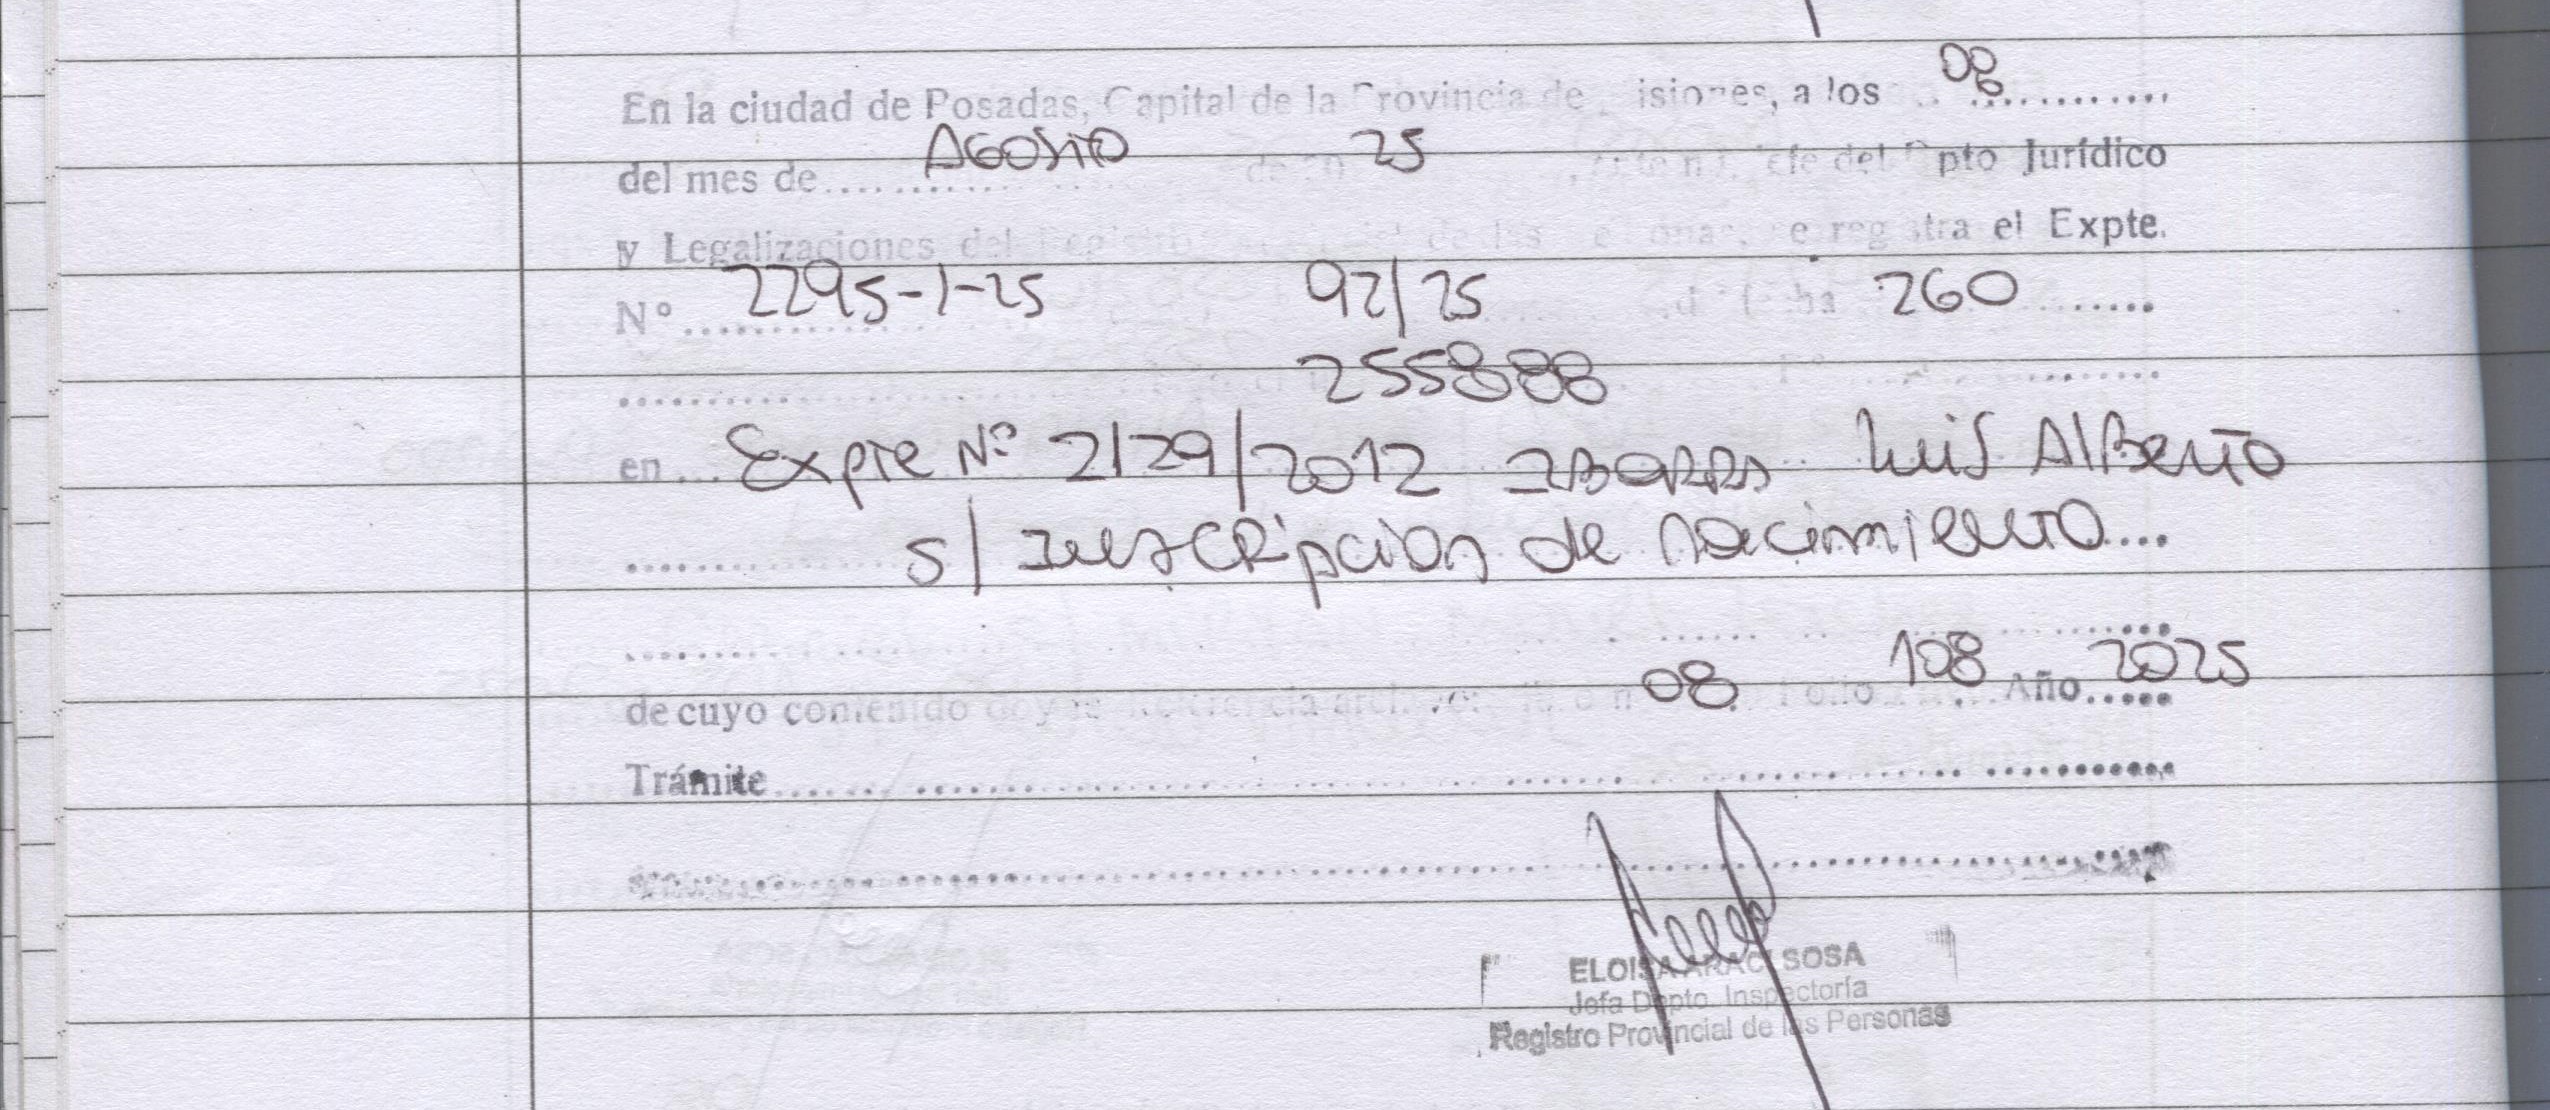 En la ciudad de Posadas, Capital de la Provincia de isiones, a los 08
del mes de AGOSTO 25 Jefe del Dpto Jurídico
y Legalizaciones del de las registra el Expte.
Nº 2295-1-25 92/25 260
255888
en Expte Nº 2129/2012 IBARRA Luis Alberto
s/ Inscripcion de nacimiento...
de cuyo contenido doy 08 Folio 108 Año 2025
Trámite
ELOISA ARACI SOSA
Jefa Dpto. Inspectoría
Registro Provincial de las Personas